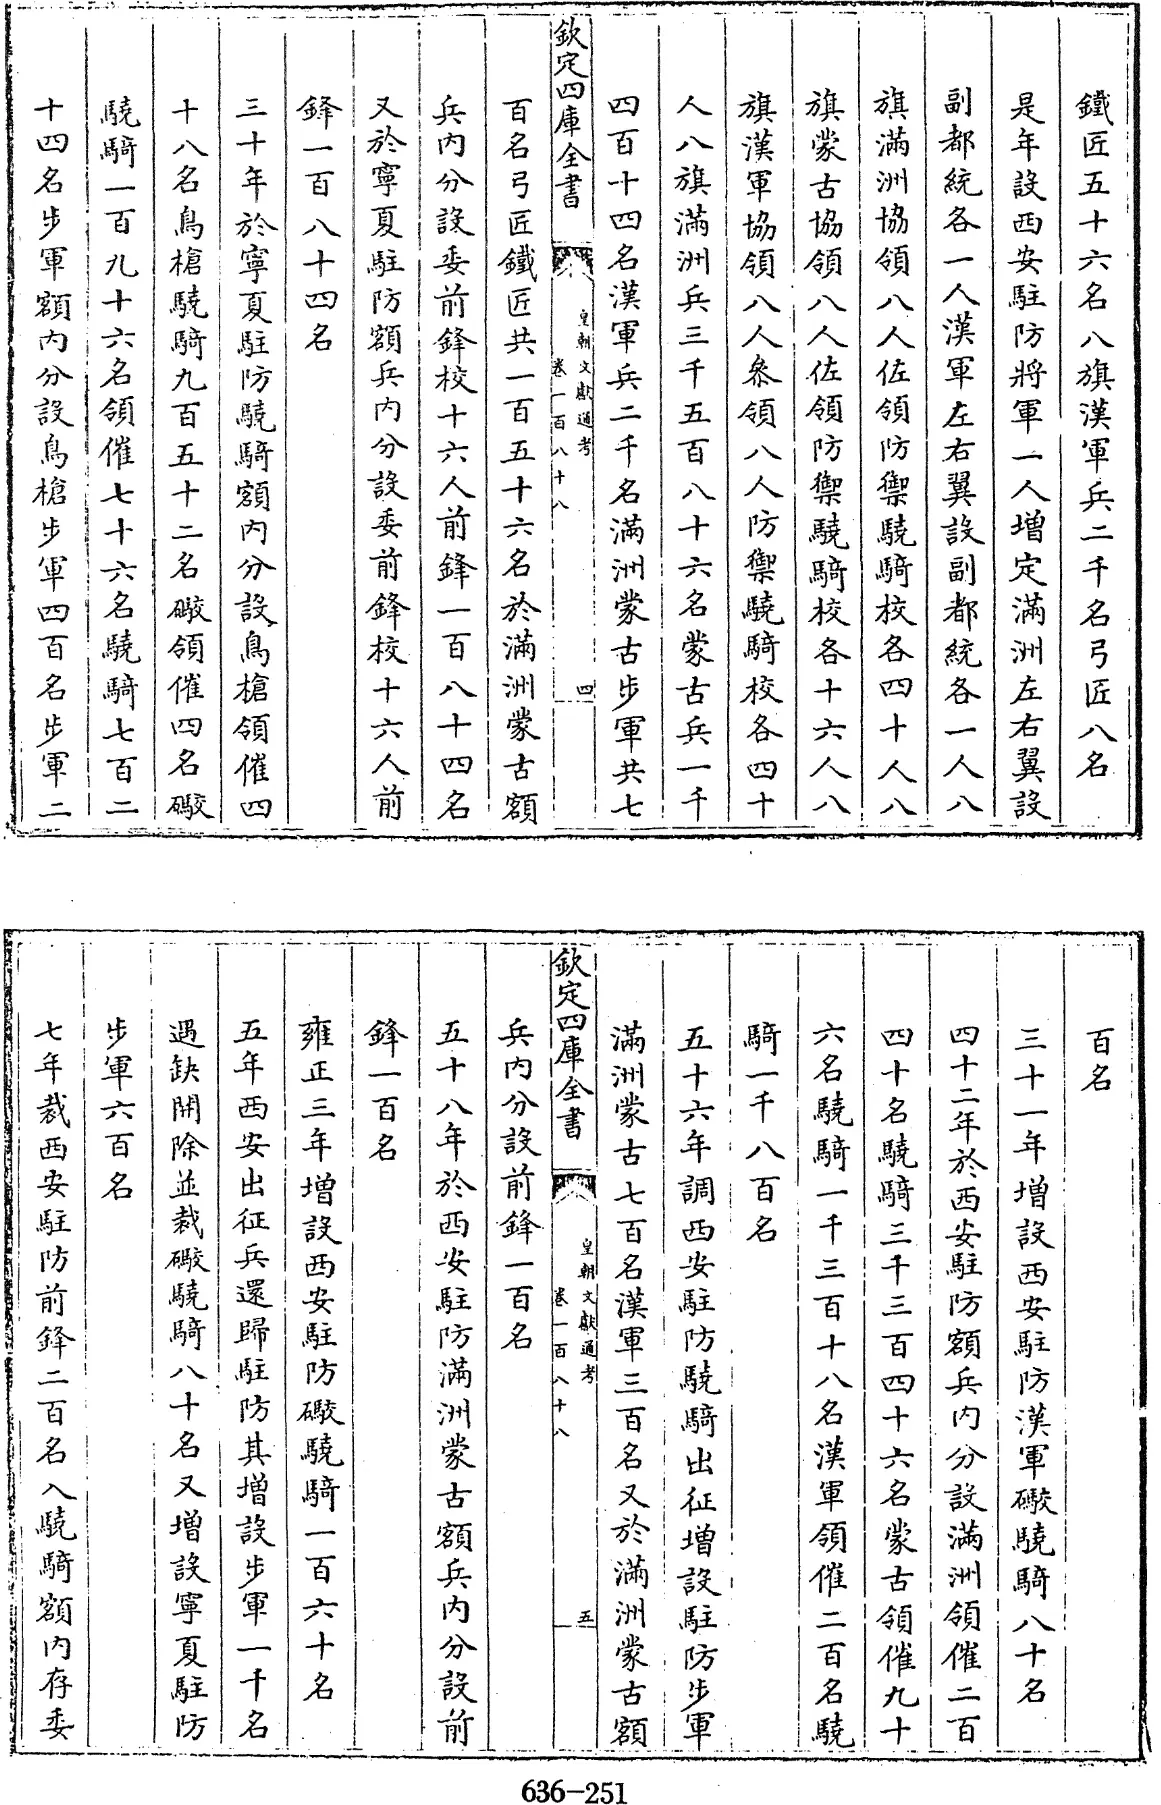 鐵匠五十六名八旗漢軍兵二千名弓匠八名
是年設西安駐防將軍一人增定滿洲左右翼設
副都統各一人漢軍左右翼設副都統各一人八
旗滿洲協領八人佐領防禦驍騎校各四十人八
旗蒙古協領八人佐領防禦驍騎校各十六人八
旗漢軍協領八人叅領八人防禦驍騎校各四十
人八旗滿洲兵三千五百八十六名蒙古兵一千
四百十四名漢軍兵二千名滿洲蒙古步軍共七
欽定四庫全書
皇朝文獻通考
卷一百八十八
四
百名弓匠鐵匠共一百五十六名於滿洲蒙古額
兵內分設委前鋒校十六人前鋒一百八十四名
又於寧夏駐防額兵內分設委前鋒校十六人前
鋒一百八十四名
三十年於寧夏駐防驍騎額內分設鳥槍領催四
十八名鳥槍驍騎九百五十二名礮領催四名礮
驍騎一百九十六名領催七十六名驍騎七百二
十四名步軍額內分設鳥槍步軍四百名步軍二
百名
三十一年增設西安駐防漢軍礮驍騎八十名
四十二年於西安駐防額兵內分設滿洲領催二百
四十名驍騎三千三百四十六名蒙古領催九十
六名驍騎一千三百十八名漢軍領催二百名驍
騎一千八百名
五十六年調西安駐防驍騎出征增設駐防步軍
滿洲蒙古七百名漢軍三百名又於滿洲蒙古額
欽定四庫全書
皇朝文獻通考
卷一百八十八
五
兵內分設前鋒一百名
五十八年於西安駐防滿洲蒙古額兵內分設前
鋒一百名
雍正三年增設西安駐防礮驍騎一百六十名
五年西安出征兵還歸駐防其增設步軍一千名
遇缺開除並裁礮驍騎八十名又增設寧夏駐防
步軍六百名
七年裁西安駐防前鋒二百名入驍騎額內存委
636-251